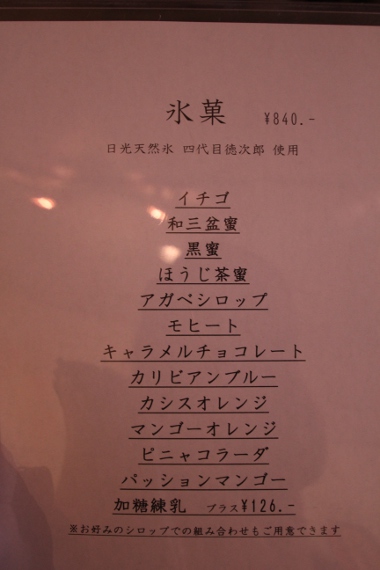 氷菓 ¥840.-
日光天然氷 四代目徳次郎 使用
イチゴ
和三盆蜜
黒蜜
ほうじ茶蜜
アガベシロップ
モヒート
キャラメルチョコレート
カリビアンブルー
カシスオレンジ
マンゴーオレンジ
ピニャコラーダ
パッションマンゴー
加糖練乳 プラス¥126.-
※お好みのシロップでの組み合わせもご用意できます